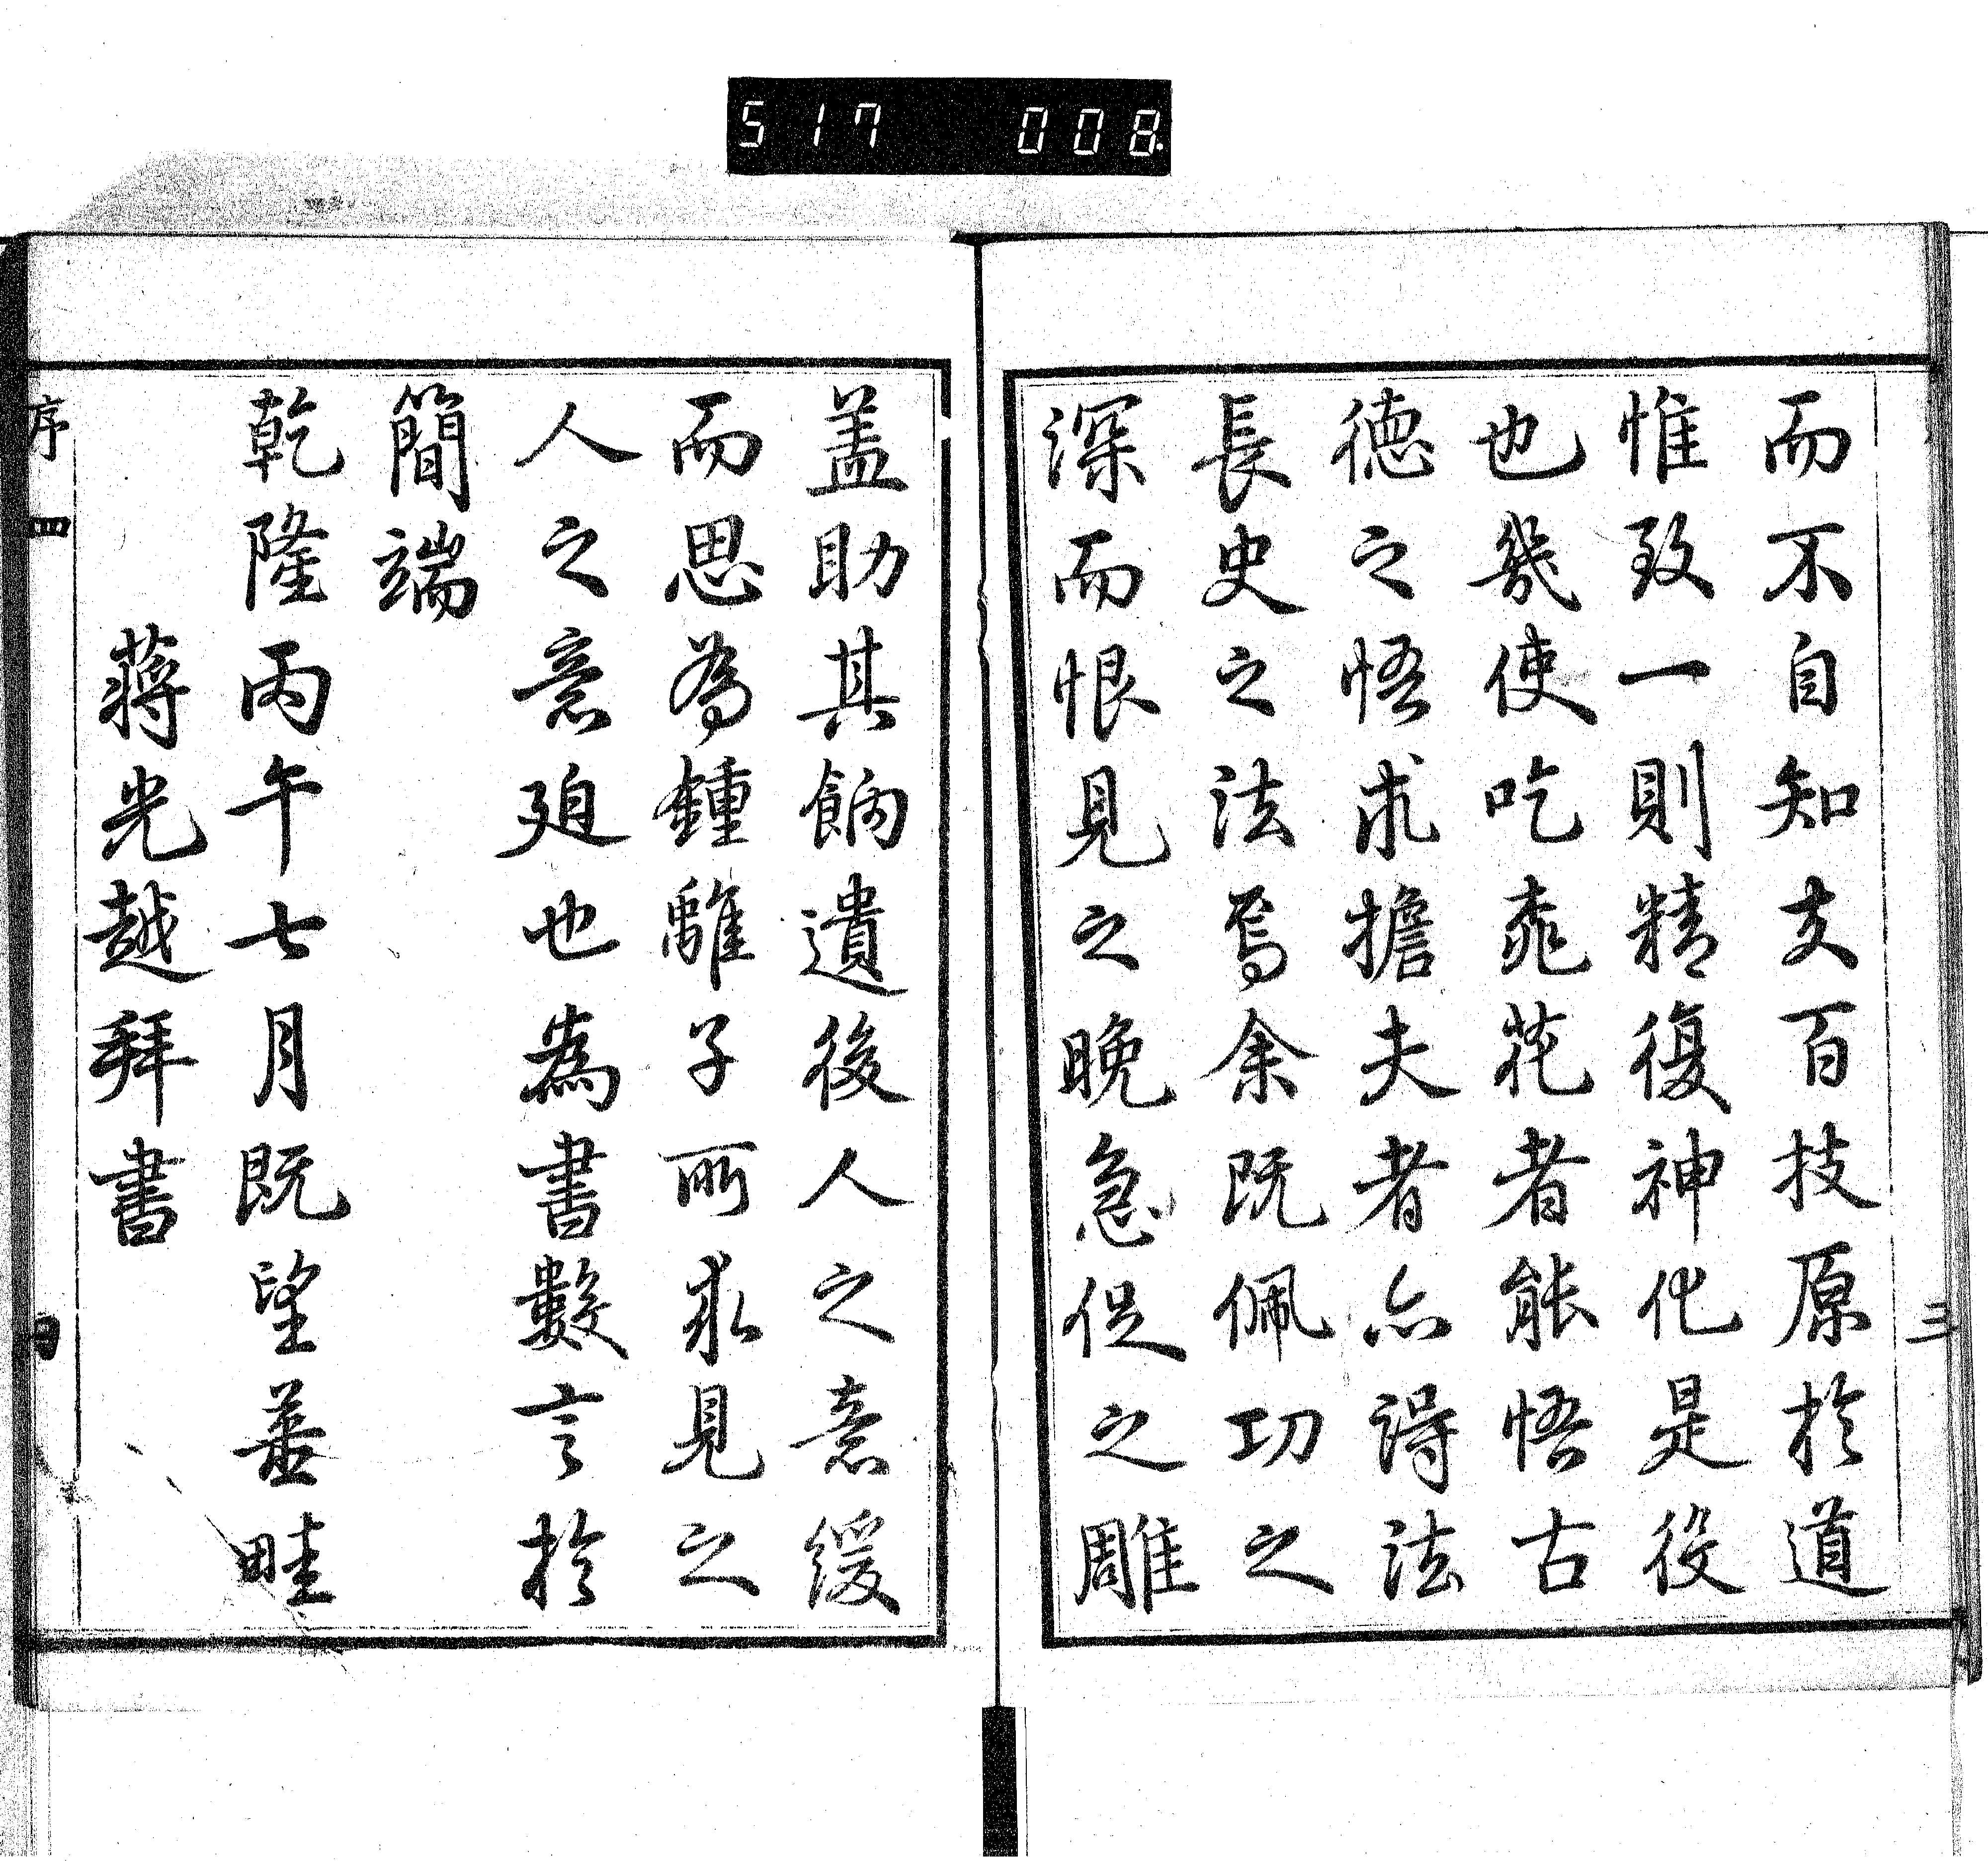 517 008
而不自知支百技原於道
惟致一則精復神化是役
也幾使吃乖花者能悟古
德之悟求擔夫者亦得法
長史之法焉余既佩功之
深而恨見之晚急促之雕
三
蓋助其餉遺後人之意緩
而思為鍾離子所求見之
人之意廹也為書數言於
簡端
乾隆丙午七月既望蓉畦
蔣光越拜書
序
四